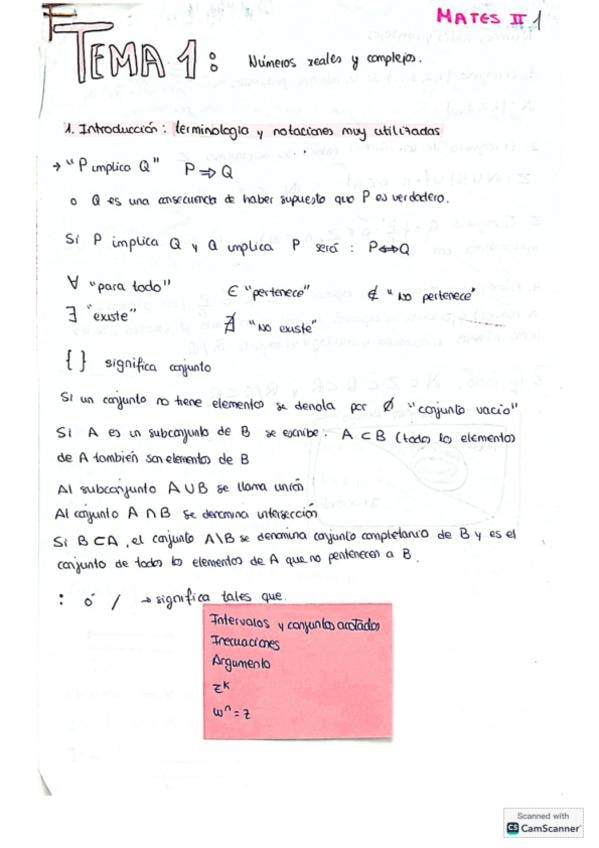 MATES II 1
TEMA 1: Números reales y complejos.
1. Introducción: terminología y notaciones muy utilizadas
→ "P implica Q" P ⇒ Q
o Q es una consecuencia de haber supuesto que P es verdadero.
Si P implica Q y Q implica P será: P⇔Q
∀ "para todo" ∈ "pertenece" ∉ "No pertenece"
∃ "existe" ∄ "No existe"
{ } significa conjunto
Si un conjunto no tiene elementos se denota por Ø "conjunto vacío"
Si A es un subconjunto de B se escribe: A ⊂ B (todos los elementos
de A también son elementos de B
Al subconjunto A ∪ B se llama unión
Al conjunto A ∩ B se denomina intersección
Si B ⊂ A, el conjunto A\B se denomina conjunto completario de B y es el
conjunto de todos los elementos de A que no pertenecen a B.
: ó / → significa tales que
Intervalos y conjuntos acotados
Inecuaciones
Argumento
z^k
w^n = z
Scanned with
CS CamScanner